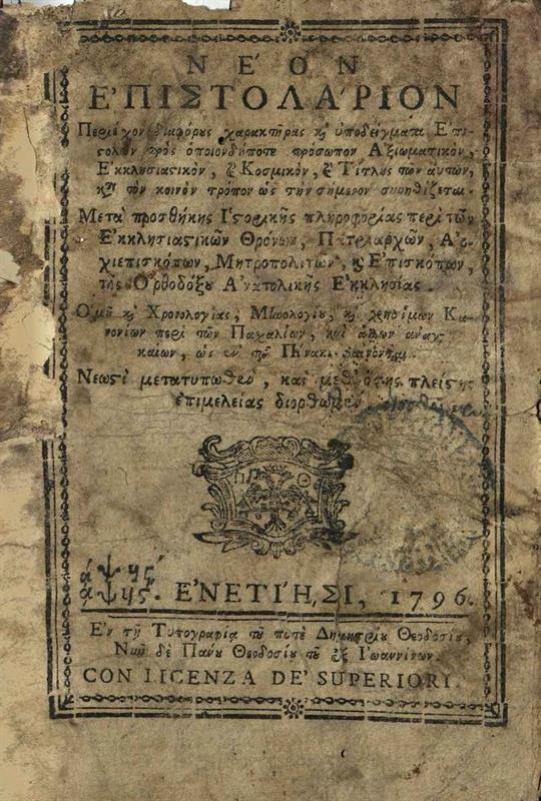 ΝΕ'ΟΝ
Ε'ΠΙΣΤΟΛΑ'ΡΙΟΝ
Περιέχον διαφόρους χαρακτῆρας καὶ ὑποδείγματα Ἐπι-
στολῶν πρὸς ὁποιονδήποτε πρόσωπον Ἀξιωματικὸν,
Ἐκκλησιαστικὸν, & Κοσμικὸν, & Τίτλους τῶν αὐτῶν,
κατὰ τὸν κοινὸν τρόπον ὡς τὴν σήμερον συνηθίζεται.
Μετὰ προσθήκης Ἱστορικῆς πληροφορίας περὶ τῶν
Ἐκκλησιαστικῶν Θρόνων, Πατριαρχῶν, Ἀρ-
χιεπισκόπων, Μητροπολιτῶν, & Ἐπισκόπων,
τῆς Ὀρθοδόξου Ἀνατολικῆς Ἐκκλησίας.
Ὁμοῦ καὶ Χρονολογίας, Μηνολογίου, καὶ χρησίμων Κα-
νονίων περὶ τῶν Πασχαλίων, καὶ ἄλλων ἀναγ-
καίων, ὡς ἐν τῷ Πίνακι
Νεωστὶ μετατυπωθὲν, καὶ μεθ' ὅτης πλείστης
ἐπιμελείας διορθωθέν
ᾳψϟϛ
ᾳψϟϛ. Ε'ΝΕΤΙ'ΗΣΙ, 1796.
Ἐν τῇ Τυπογραφίᾳ τοῦ ποτὲ Δημητρίου Θεοδοσίου,
Νῦν δὲ Πάνου Θεοδοσίου τοῦ ἐξ Ἰωαννίνων.
CON LICENZA DE' SUPERIORI.